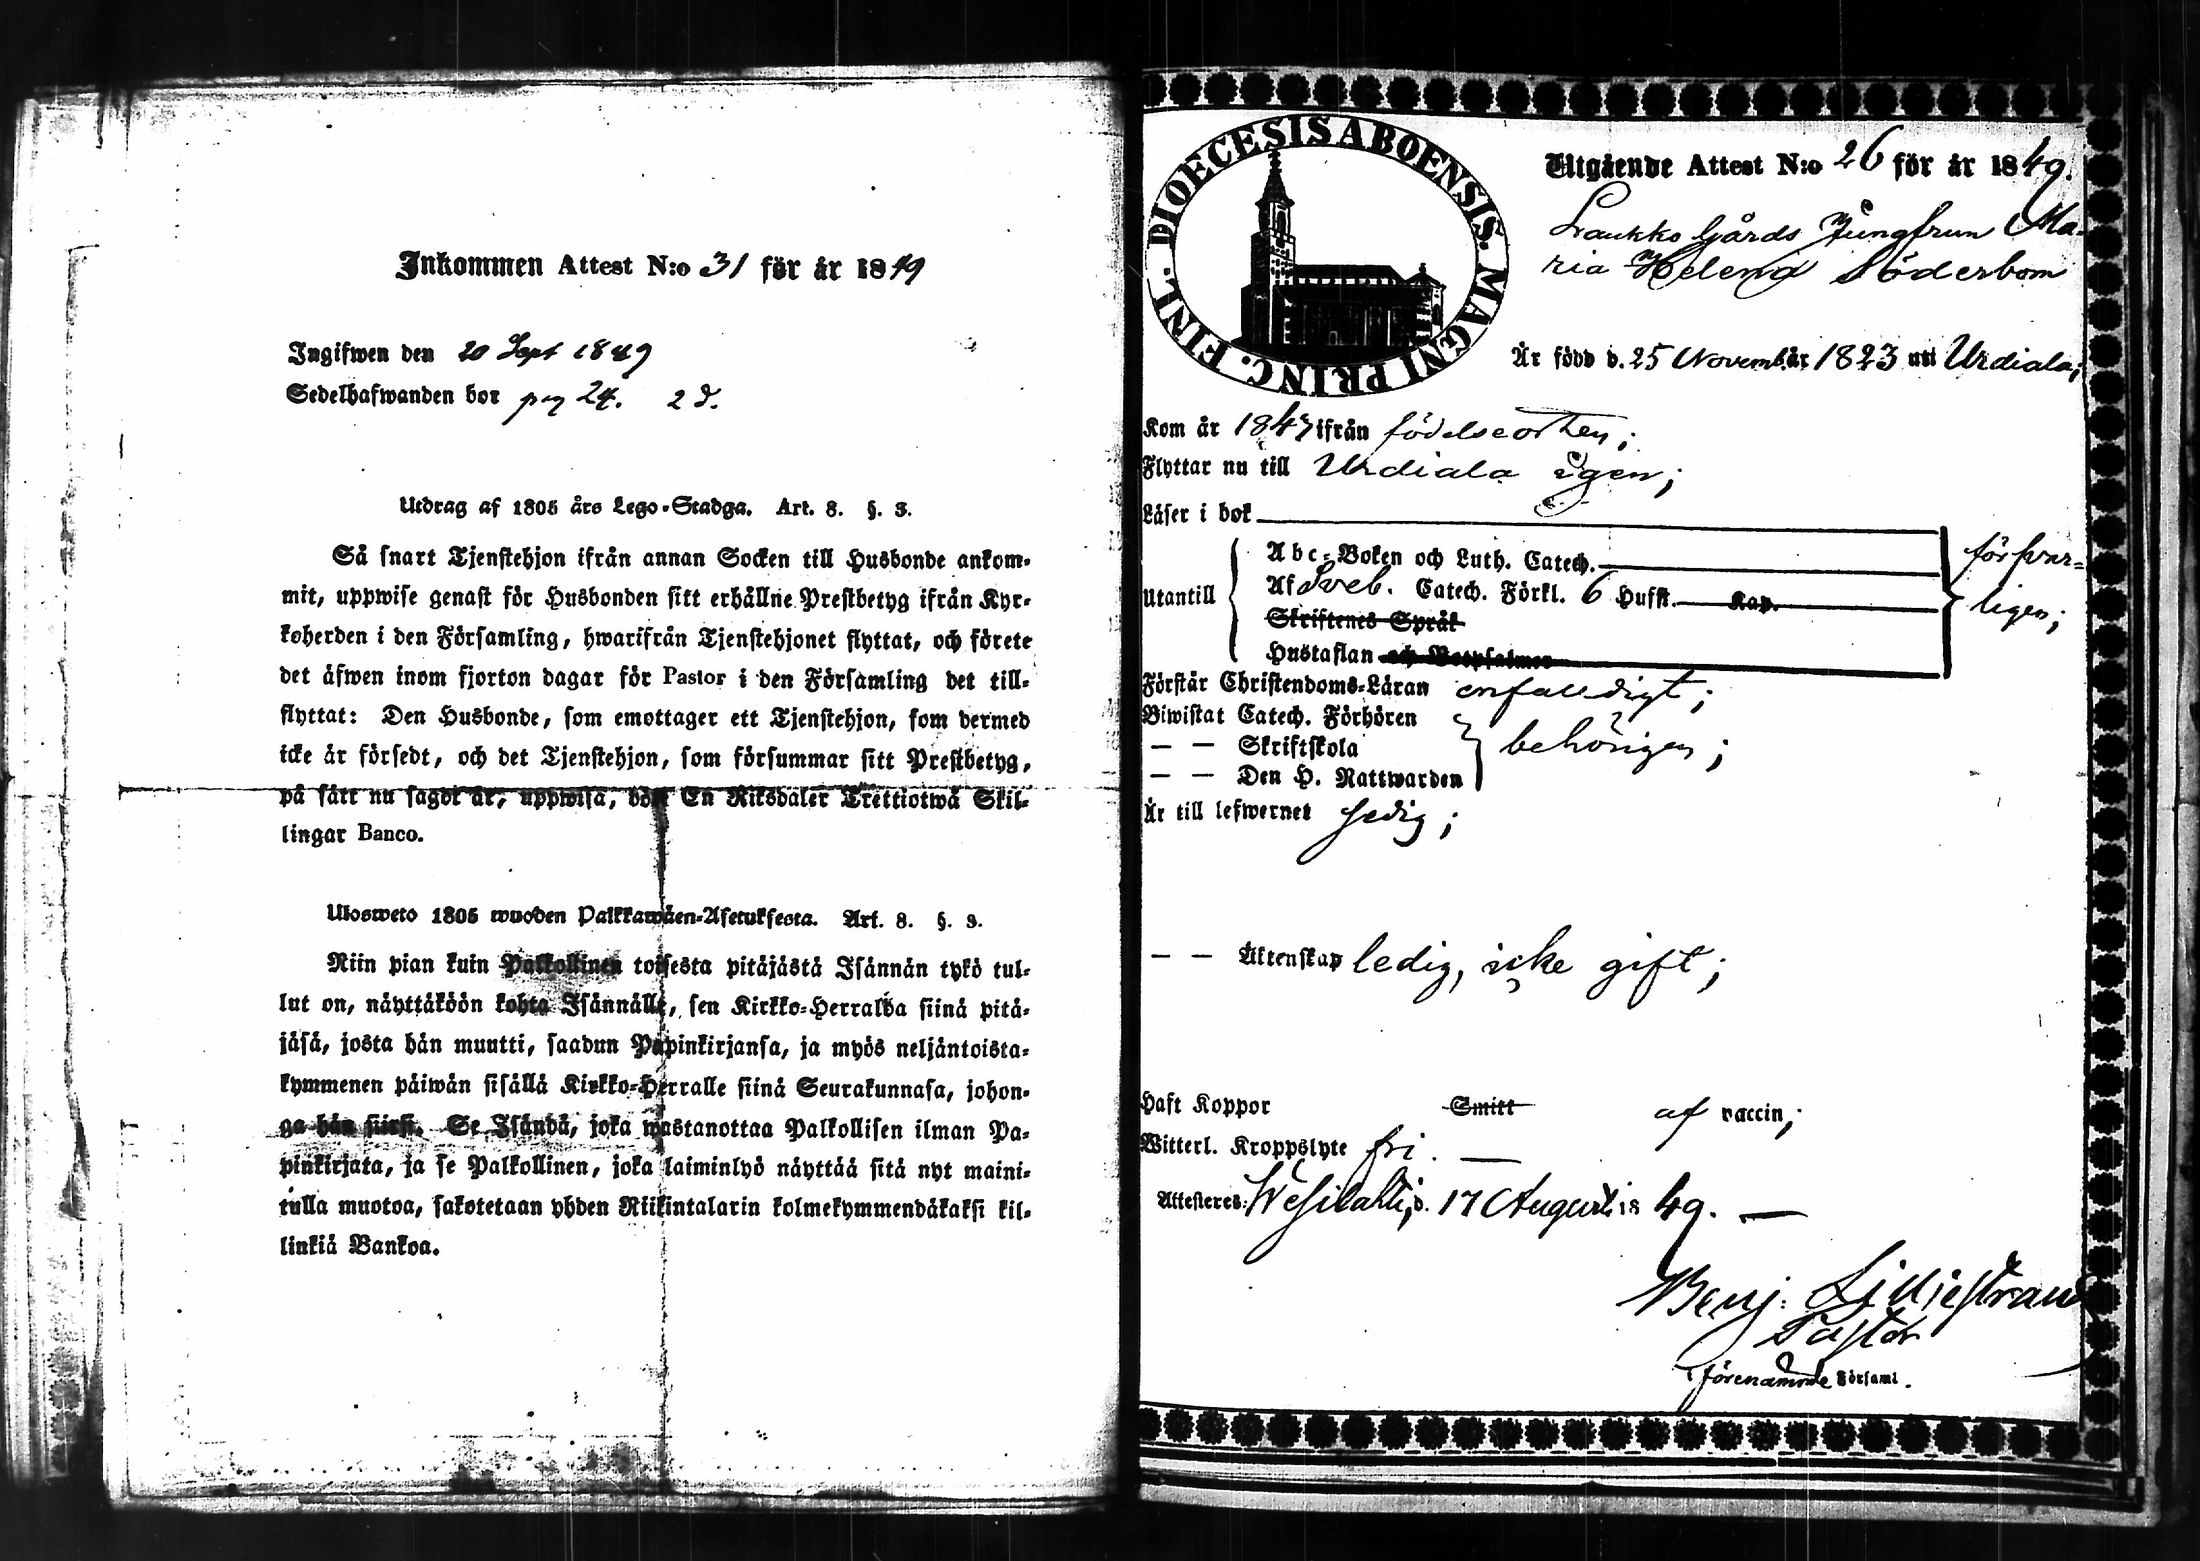 Inkommen Attest N:o 31 för år 1849
Ingifwen den 20 Sept 1849
Sedelhafwanden bor pag 24. 2 d.
Utdrag af 1805 års Lego-Stadga. Art. 8. §. 3.
Så snart Tjenstehjon ifrån annan Socken till Husbonde ankom-
mit, uppwise genast för Husbonden sitt erhållne Prestbetyg ifrån Kyr-
koherden i den Församling, hwarifrån Tjenstehjonet flyttat, och förete
det äfwen inom fjorton dagar för Pastor i den Församling det till-
flyttat: Den Husbonde, som emottager ett Tjenstehjon, som dermed
icke är försedt, och det Tjenstehjon, som försummar sitt Prestbetyg,
på sätt nu sagdt är, uppwisa, böte En Riksdaler Trettiotwå Skil-
lingar Banco.
Ulosweto 1805 wuoden Palkkawäen-Asetuksesta. Art. 8. §. 3.
Niin pian kuin Palkollinen toisesta pitäjästä Isännän tykö tul-
lut on, näyttäköön kohta Isännälle, sen Kirkko-Herralda siinä pitä-
jäsä, josta hän muutti, saadun Papinkirjansa, ja myös neljäntoista-
kymmenen päiwän sisällä Kirkko-Herralle siinä Seurakunnasa, johon-
ga hän siirsi. Se Isändä, joka wastanottaa Palkollisen ilman Pa-
pinkirjata, ja se Palkollinen, joka laiminlyö näyttää sitä nyt maini-
tulla muotoa, sakotetaan yhden Riikintalarin kolmekymmendäkaksi kil-
linkiä Bankoa.
DIOECESIS ABOENSIS. MAGNI PRINC. FINL.
Utgående Attest N:o 26 för år 1849.
Laukko Gårds Jungfrun Ma-
ria Helena Söderbom
Är född d. 25 November år 1823 uti Urdiala;
Kom år 1847 ifrån födelseorten;
Flyttar nu till Urdiala igen;
Läser i bok
försvar-
ligen;
Utantill
Abc-Boken och Luth. Catech.
Af Sveb. Catech. Förkl. 6 Hufst. Kap.
Skriftenes Språk
Hustaflan och Botpsalmer
Förstår Christendoms-Läran enfaldigt;
Biwistat Catech. Förhören
— — Skriftskola behörigen;
— — Den H. Nattwarden
Är till lefwernet sedig;
— — Äktenskap ledig, icke gift;
Haft Koppor Smitt af vaccin;
Witterl. Kroppslyte fri. —
Attesteres: Wesilahti, d. 17 Augusti 1849. —
Benj: Liljestrand
Pastor
i förenämnde Församl.